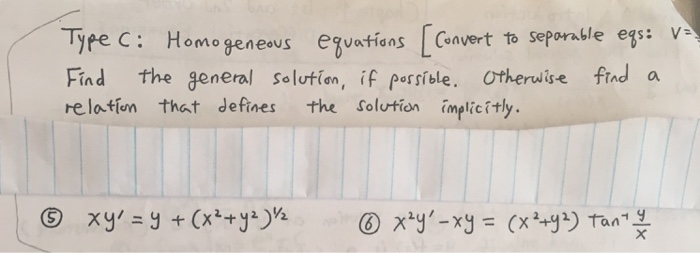 Type C: Homogeneous equations [Convert to separable eqs: V=
Find the general solution, if possible. Otherwise find a
relation that defines the solution implicitly.
⑤ xy' = y + (x²+y²)^½ ⑥ x²y' - xy = (x²+y²) tan⁻¹ y/x